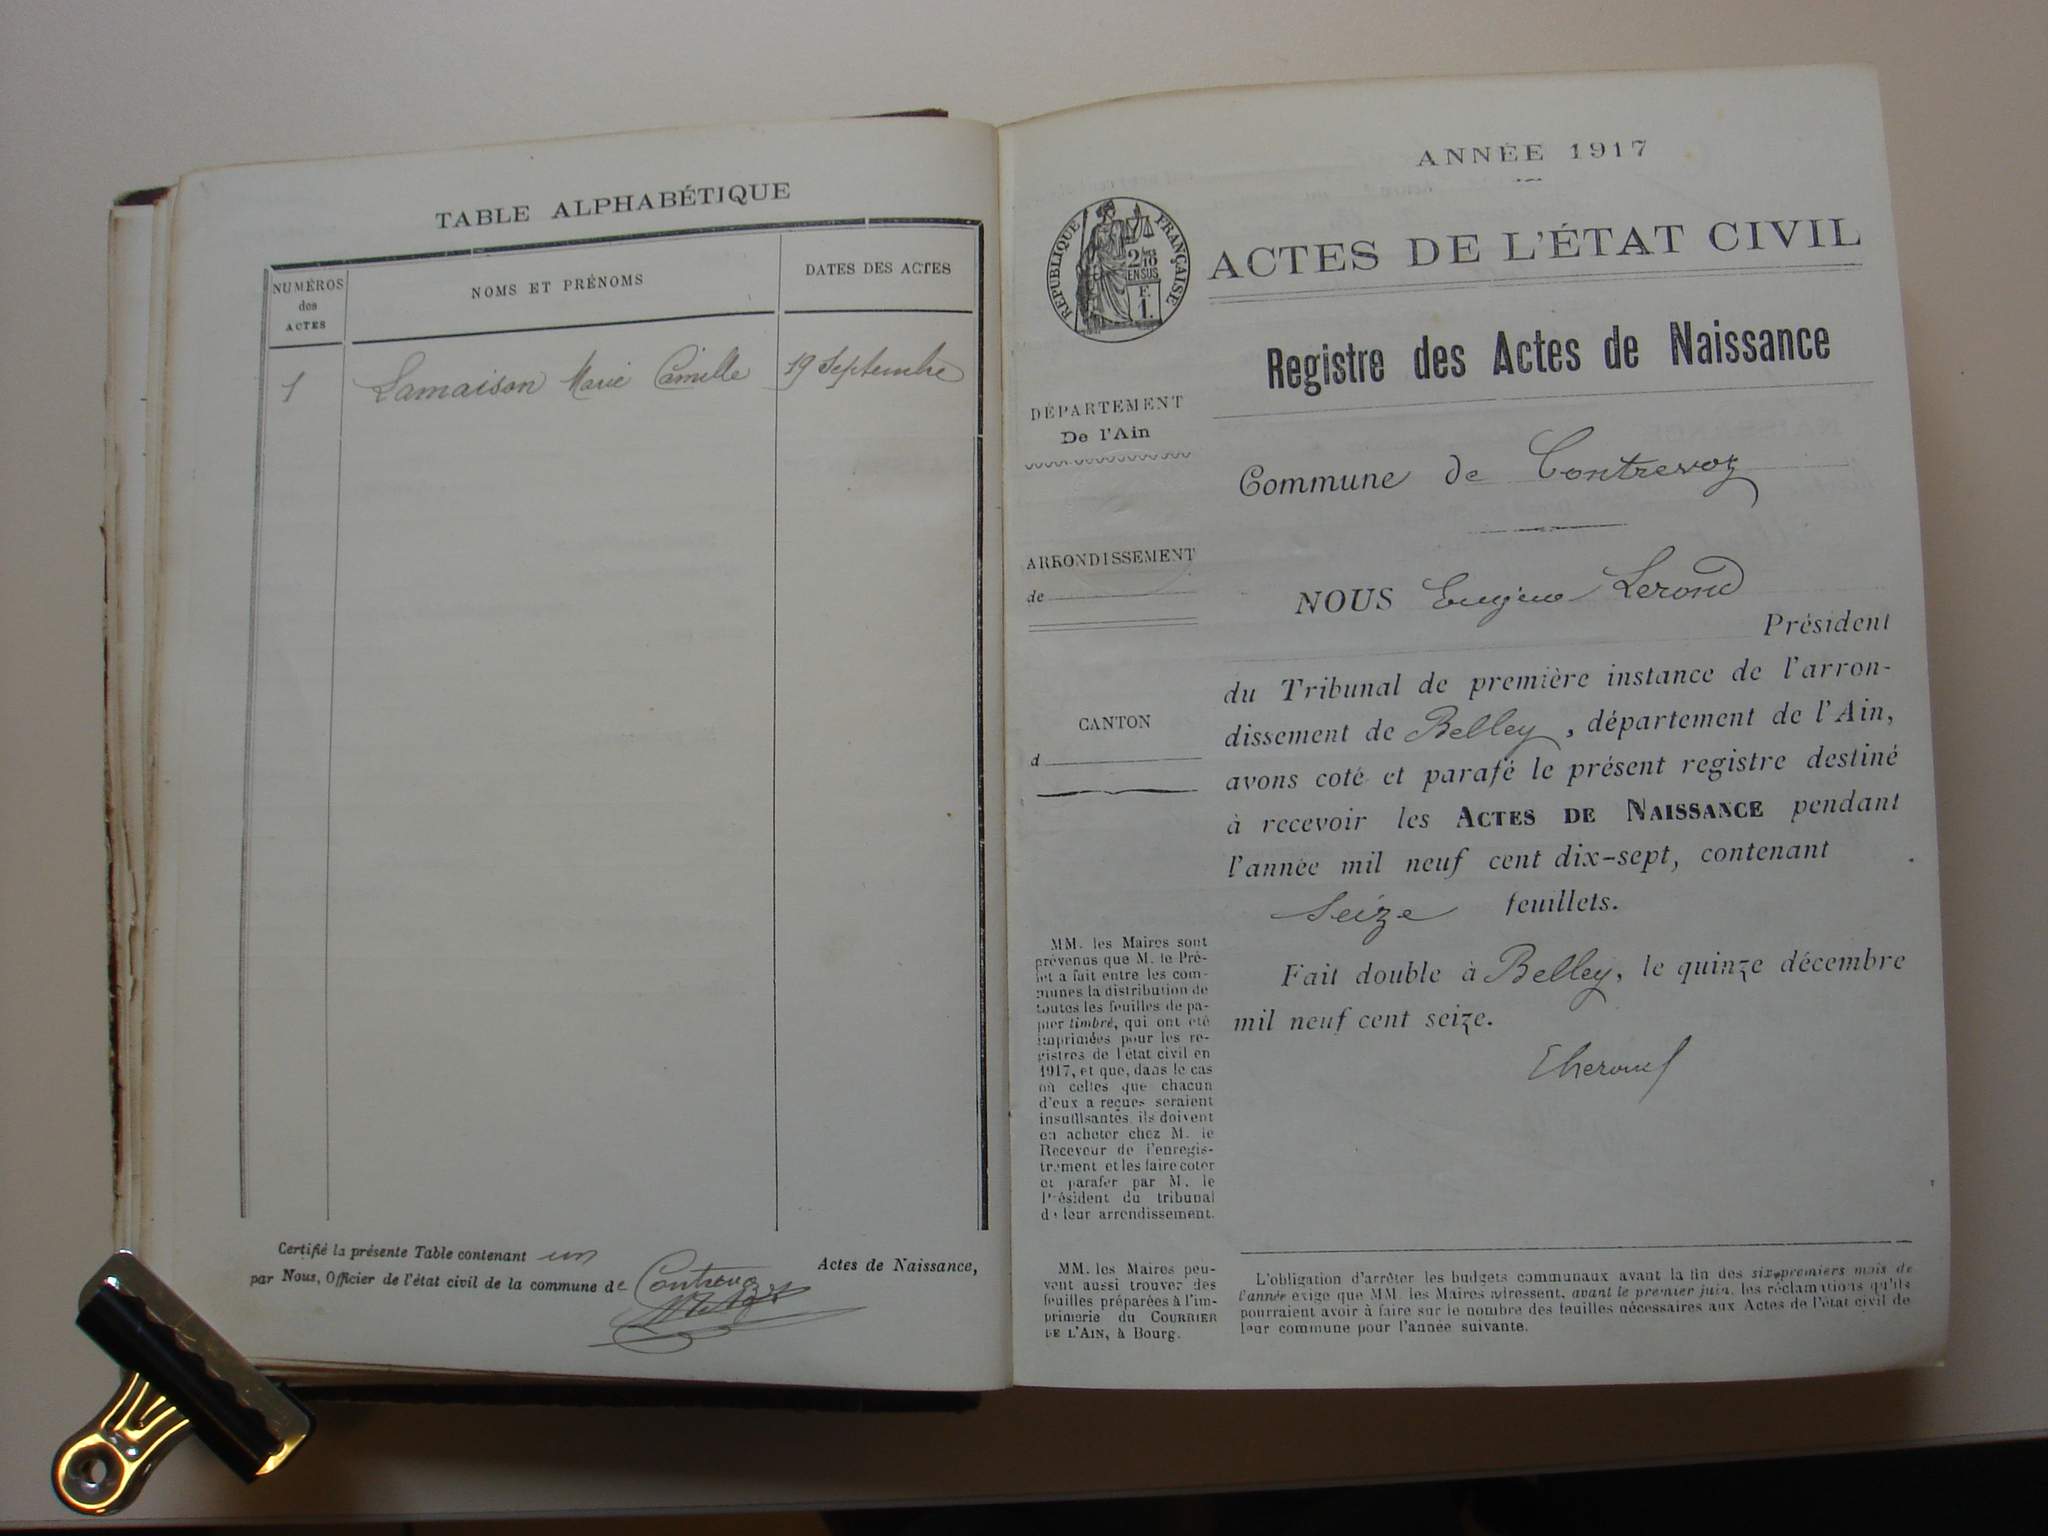 TABLE ALPHABÉTIQUE
NUMÉROS
des
ACTES
NOMS ET PRÉNOMS
DATES DES ACTES
1 Lamaison Marie Camille 19 Septembre
Certifié la présente Table contenant un Actes de Naissance,
par Nous, Officier de l'état civil de la commune de Contrevoz
ANNÉE 1917
RÉPUBLIQUE FRANÇAISE
2/10
EN SUS
F.
1.
ACTES DE L'ÉTAT CIVIL
Registre des Actes de Naissance
DÉPARTEMENT
De l'Ain
ARRONDISSEMENT
de
CANTON
d
MM. les Maires sont
prévenus que M. le Pré-
fet a fait entre les com-
munes la distribution de
toutes les feuilles de pa-
pier timbré, qui ont été
imprimées pour les re-
gistres de l'état civil en
1917, et que, dans le cas
où celles que chacun
d'eux a reçues seraient
insuffisantes, ils doivent
en acheter chez M. le
Receveur de l'enregis-
trement et les faire coter
et parafer par M. le
Président du tribunal
de leur arrondissement.
MM. les Maires peu-
vent aussi trouver des
feuilles préparées à l'im-
primerie du COURRIER
DE L'AIN, à Bourg.
Commune de Contrevoz
NOUS Eugène Lerond
Président
du Tribunal de première instance de l'arron-
dissement de Belley, département de l'Ain,
avons coté et parafé le présent registre destiné
à recevoir les ACTES DE NAISSANCE pendant
l'année mil neuf cent dix-sept, contenant
Seize feuillets.
Fait double à Belley, le quinze décembre
mil neuf cent seize.
L'obligation d'arrêter les budgets communaux avant la fin des six premiers mois de
l'année exige que MM. les Maires adressent, avant le premier juin, les réclamations qu'ils
pourraient avoir à faire sur le nombre des feuilles nécessaires aux Actes de l'état civil de
leur commune pour l'année suivante.